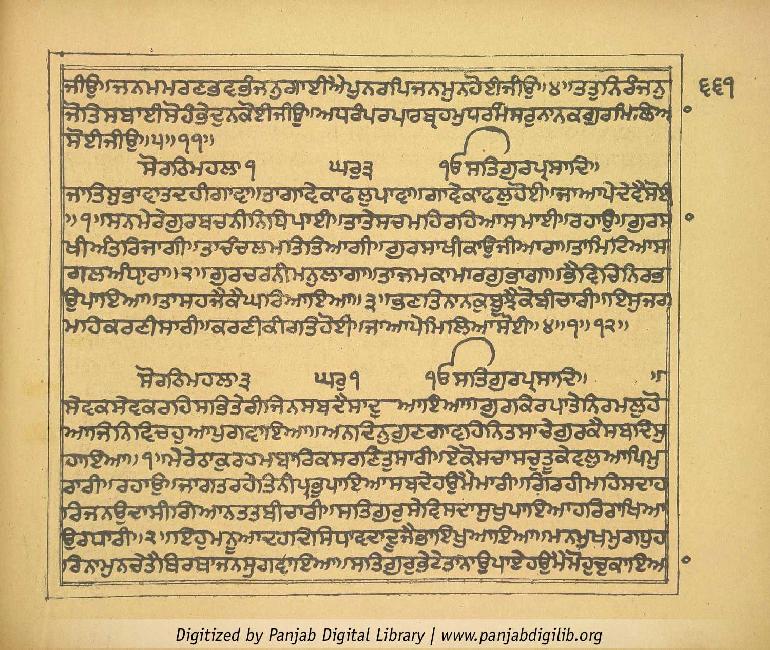 ਜੀਉ॥ਜਨਮਮਰਣਭਵਭੰਜਨੁਗਾਈਐਪੁਨਰਪਿਜਨਮੁਨਹੋਈਜੀਉ॥੪॥ਤਤੁਨਿਰੰਜਨੁ
੬੬੧
ਜੋਤਿਸਬਾਈਸੋਹੰਭੇਦੁਨਕੋਈਜੀਉ॥ਅਪਰੰਪਰਪਾਰਬ੍ਰਹਮੁਪਰਮੇਸਰੁਨਾਨਕਗੁਰੁਮਿਲਿਆ
ਸੋਈਜੀਉ॥੫॥੧੧॥
ਸੋਰਠਿਮਹਲਾ੧ ਘਰੁ੩ ੴਸਤਿਗੁਰਪ੍ਰਸਾਦਿ॥
ਜਾਤਿਸੁਭਾਵਾਤਦਹੀਗਾਵਾ॥ਤਾਗਾਵੇਕਾਫਲੁਪਾਵਾ॥ਗਾਵੇਕਾਫਲੁਹੋਈ॥ਜਾਆਪੇਦੇਵੈਸੋਈ
॥੧॥ਮਨਮੇਰੇਗੁਰਬਚਨੀਨਿਧਿਪਾਈ॥ਤਾਤੇਸਚਮਹਿਰਹਿਆਸਮਾਈ॥ਰਹਾਉ॥ਗੁਰਸਾ
ਖੀਅੰਤਰਿਜਾਗੀ॥ਤਾਚੰਚਲਮਤਿਤਿਆਗੀ॥ਗੁਰਸਾਖੀਕਾਉਜੀਆਰਾ॥ਤਾਮਿਟਿਆਸ
ਗਲਅੰਧ੍ਯਾਰਾ॥੨॥ਗੁਰਚਰਨੀਮਨੁਲਾਗਾ॥ਤਾਜਮਕਾਮਾਰਗੁਭਾਗਾ॥ਭੈਵਿਚਿਨਿਰਭਉ
ਪਾਇਆ॥ਤਾਸਹਜੈਕੈਘਰਿਆਇਆ॥੩॥ਭਣਤਿਨਾਨਕੁਬੂਝੈਕੋਬੀਚਾਰੀ॥ਇਸੁਜਗ
ਮਹਿਕਰਣੀਸਾਰੀ॥ਕਰਣੀਕੀਰਤਿਹੋਈ॥ਜਾਆਪੇਮਿਲਿਆਸੋਈ॥੪॥੧॥੧੨॥
ਸੋਰਠਿਮਹਲਾ੩ ਘਰੁ੧ ੴਸਤਿਗੁਰਪ੍ਰਸਾਦਿ॥
ਸੇਵਕਸੇਵਕਰਹਿਸਭਿਤੇਰੀਜਿਨਸਬਦੈਸਾਦੁਆਇਆ॥ਗੁਰਕਿਰਪਾਤੇਨਿਰਮਲੁਹੋ
ਆਜਿਨਿਵਿਚਹੁਆਪੁਗਵਾਇਆ॥ਅਨਦਿਨੁਗੁਣਗਾਵਹਿਨਿਤਸਾਚੇਗੁਰਕੈਸਬਦਿਸੁ
ਹਾਇਆ॥੧॥ਮੇਰੇਠਾਕੁਰਹਮਬਾਰਿਕਸਰਣਿਤੁਮਾਰੀ॥ਏਕੋਸਚਾਸਚੁਤੂਕੇਵਲੁਆਪਿਮੁ
ਰਾਰੀ॥ਰਹਾਉ॥ਜਾਗਤਰਹੇਤਿਨੀਪ੍ਰਭੁਪਾਇਆਸਬਦੇਹਉਮੈਮਾਰੀ॥ਗਿਰਹੀਮਹਿਸਦਾਹ
ਰਿਜਨਉਦਾਸੀਗਿਆਨਤਤਬੀਚਾਰੀ॥ਸਤਿਗੁਰੁਸੇਵਿਸਦਾਸੁਖੁਪਾਇਆਹਰਿਰਾਖਿਆ
ਉਰਧਾਰੀ॥੨॥ਇਹੁਮਨੂਆਦਹਦਿਸਿਧਾਵਦਾਦੂਜੈਭਾਇਖੁਆਇਆ॥ਮਨਮੁਖਮੁਗਧੁਹ
ਰਿਨਾਮੁਨਚੇਤੈਬਿਰਥਾਜਨਮੁਗਵਾਇਆ॥ਸਤਿਗੁਰੁਭੇਟੇਤਾਨਾਉਪਾਏਹਉਮੈਮੋਹੁਚੁਕਾਇਆ
Digitized by Panjab Digital Library | www.panjabdigilib.org